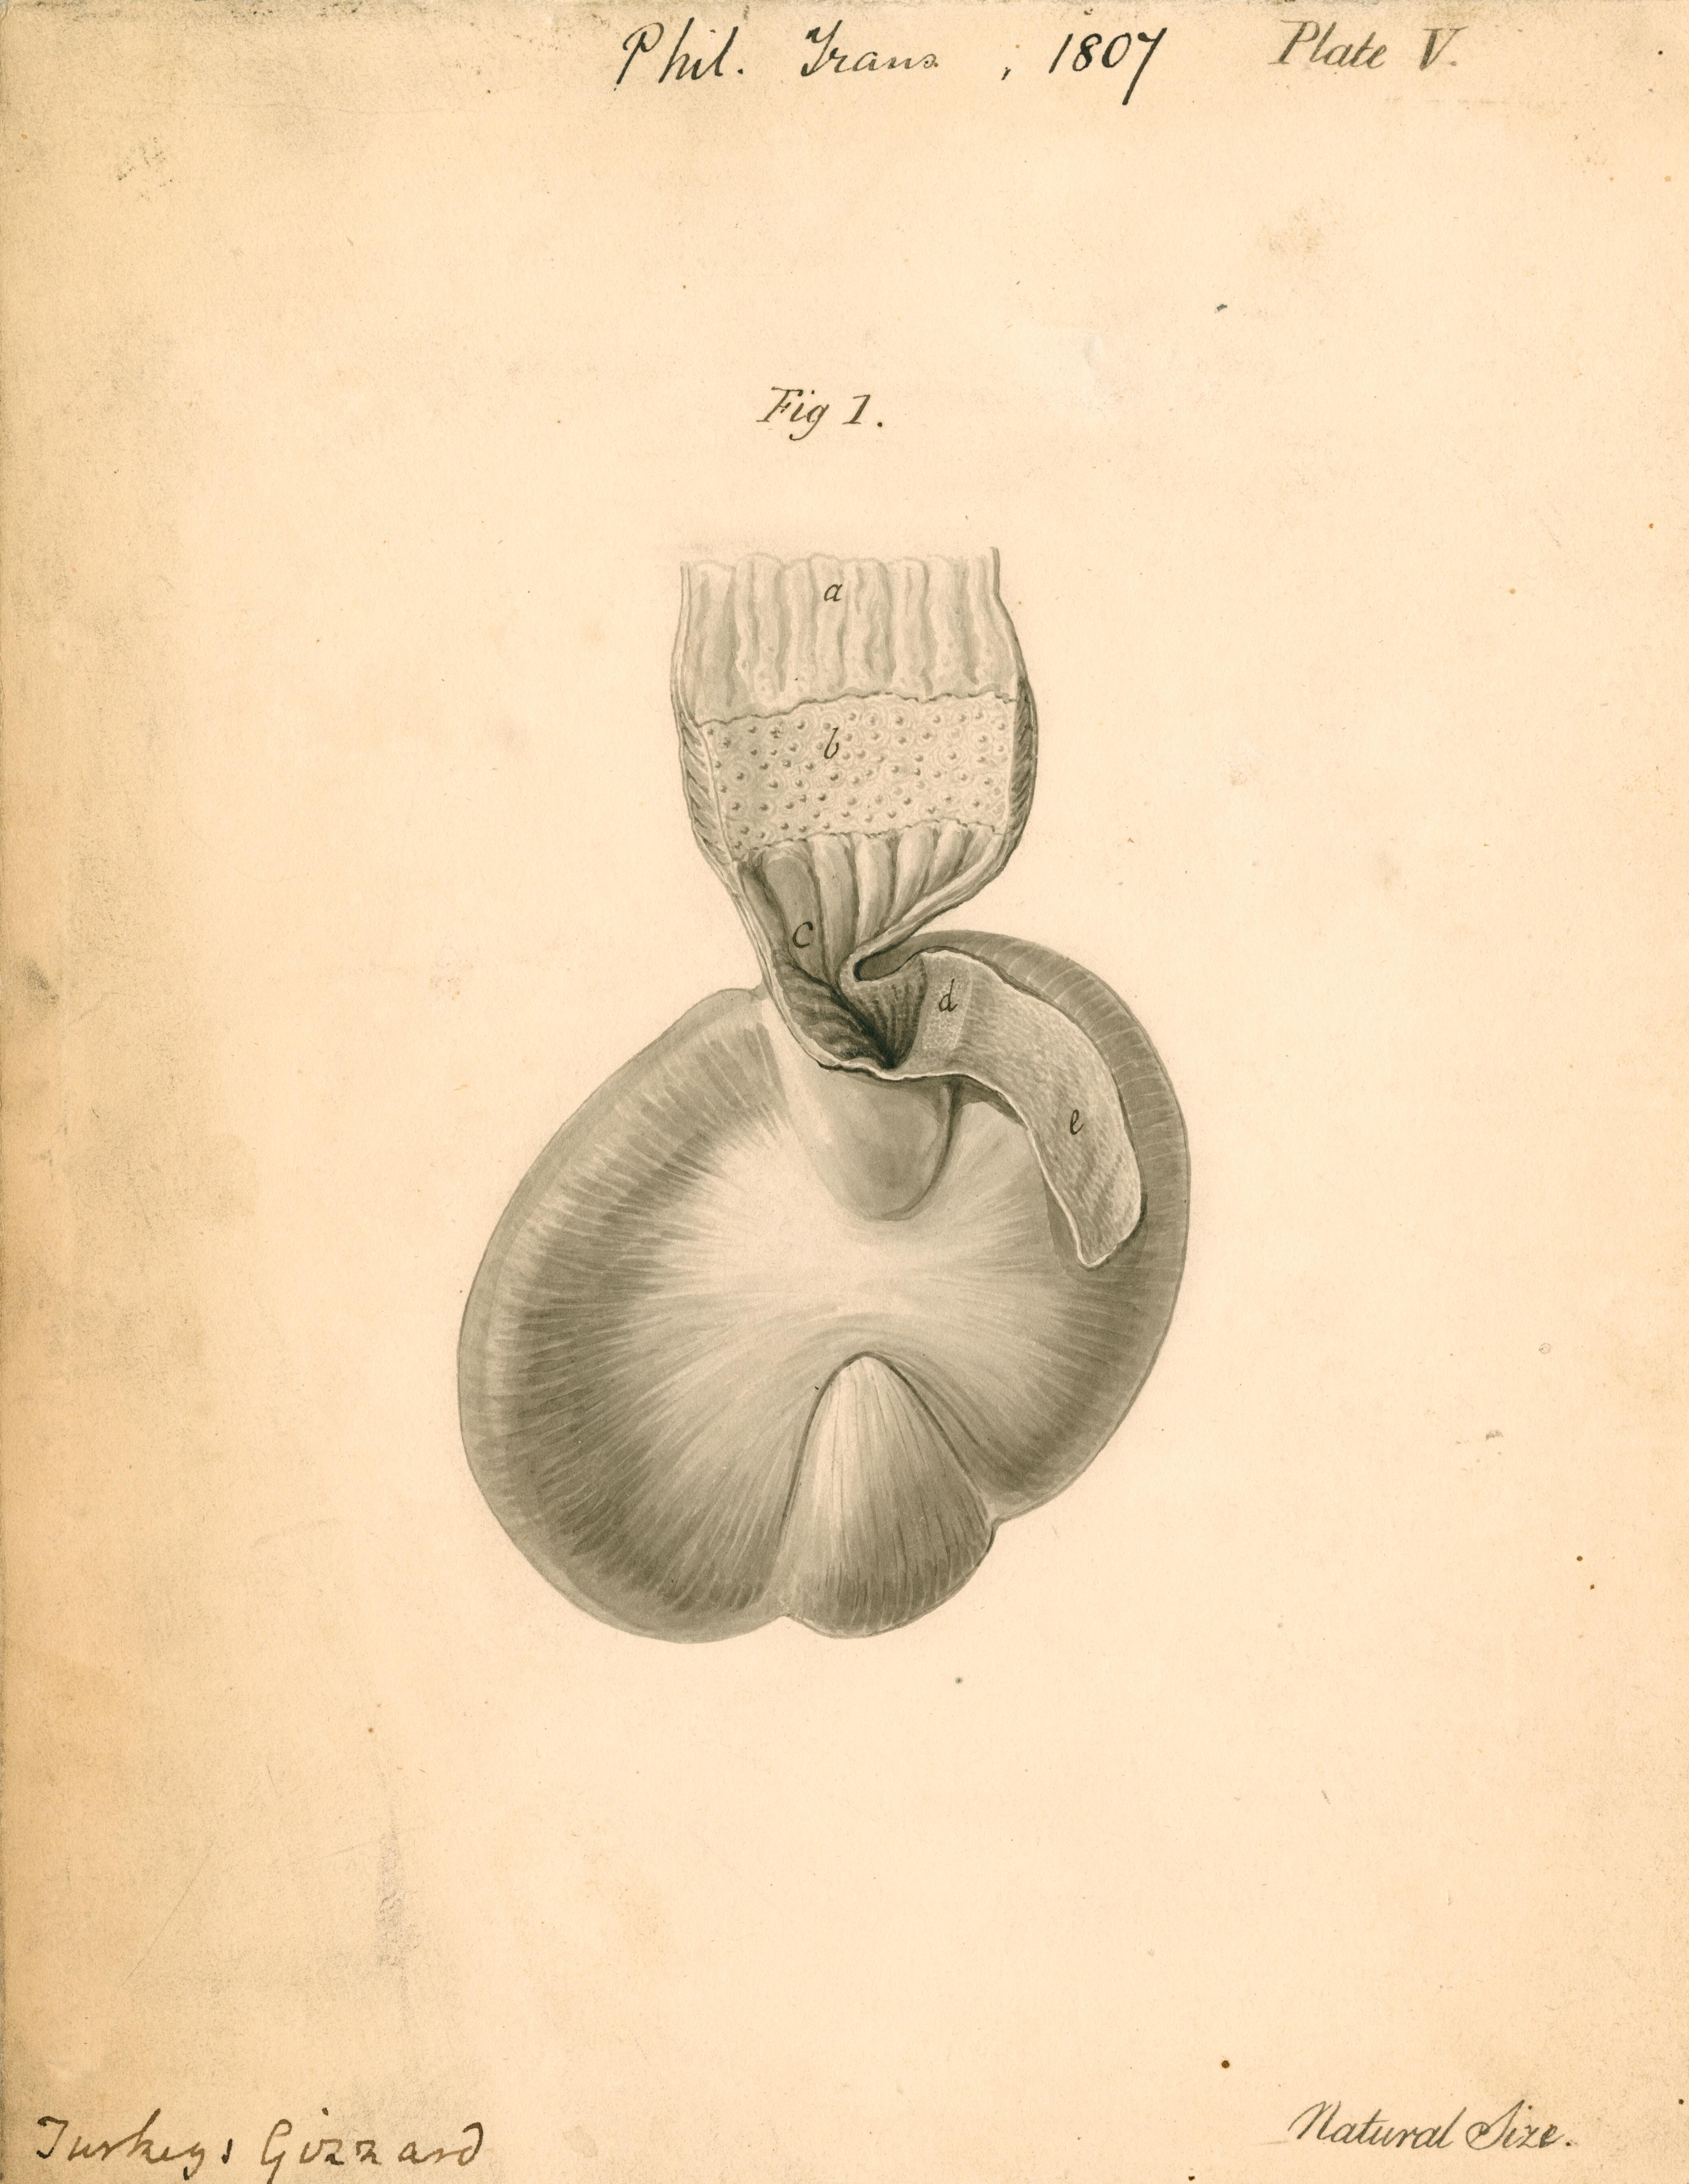 Phil. Trans. , 1807 Plate V.
Fig 1.
a
b
c
d
e
Turkeys Gizzard
Natural Size.